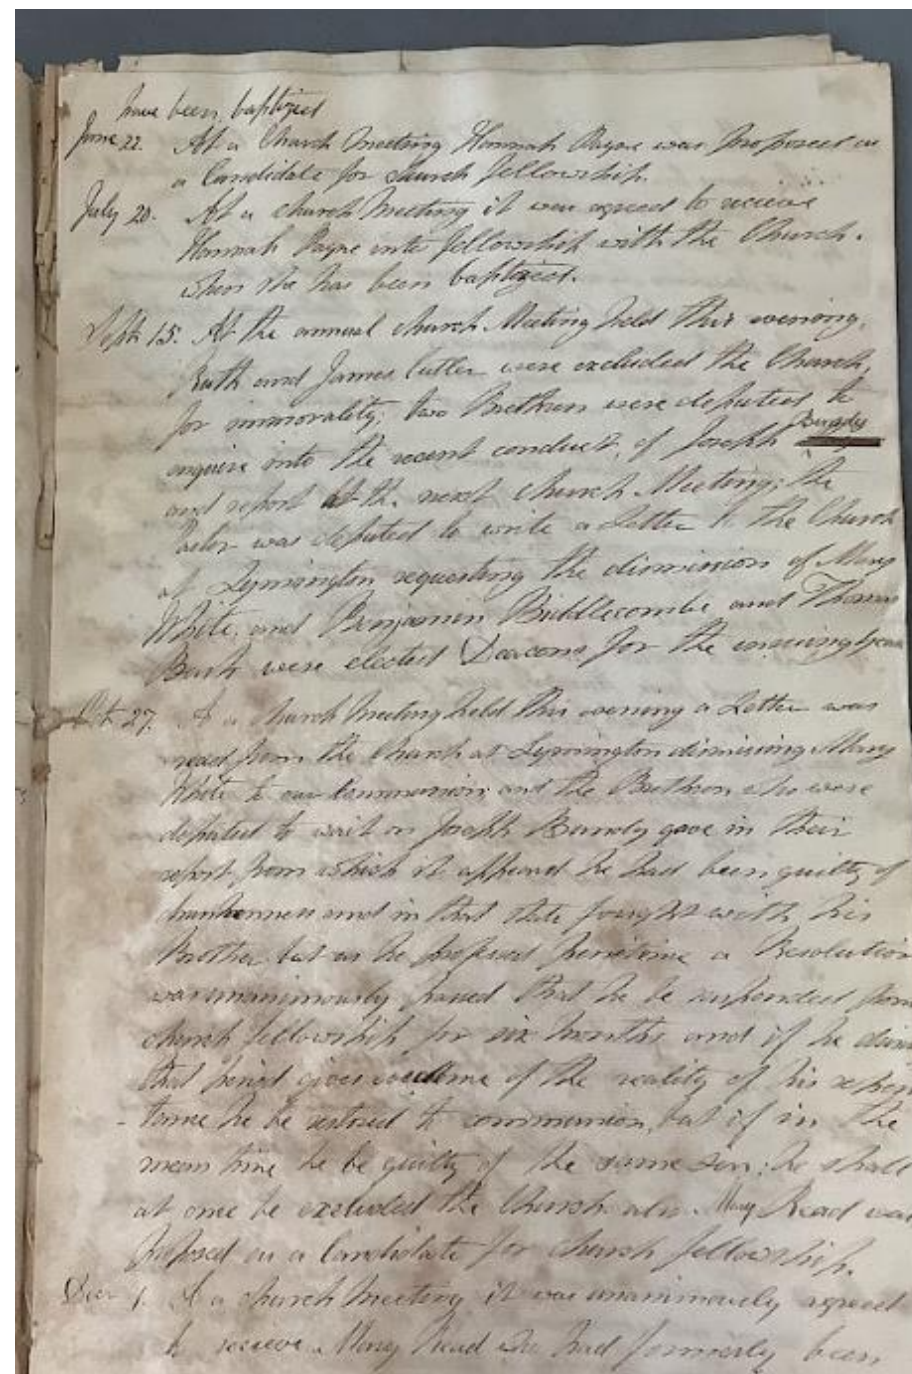 have been baptized
June 22. At a Church Meeting Hannah Payne was proposed as
a Candidate for church fellowship.
July 20. At a church Meeting it was agreed to recieve
Hannah Payne into fellowship with the Church.
when she has been baptized.
Septr 15. At the annual church Meeting held this evening,
Ruth and James Cutler were excluded the Church,
for immorality; two Brethren were deputed to
enquire into the recent conduct, of Joseph Bundy
and report at the next church Meeting; the
Pastor was deputed to write a Letter to the Church
at Lymington requesting the dismission of Mary
White, and Benjamin Biddlecombe and Thomas
were elected Deacons for the ensuing year
Oct. 27. At a church Meeting held this evening a Letter was
read from the Church at Lymington dismissing Mary
White to our Communion; and the Brethren who were
deputed to wait on Joseph Bundy gave in their
report from which it appeard he had been guilty of
drunkenness and in that state fought with his
Brother but as he professed penitence a Resolution
was unanimously passed that he be suspended from
church fellowship for six months and if he during
that period gives evidence of the reality of his repen
-tance he be restored to communion, but if in the
mean time he be guilty of the same sin; he shall
at once be excluded the Church also. Mary Read was
proposed as a Candidate for church fellowship.
Decr 1. At a church Meeting it was unanimously agreed
to recieve Mary Read who had formerly been